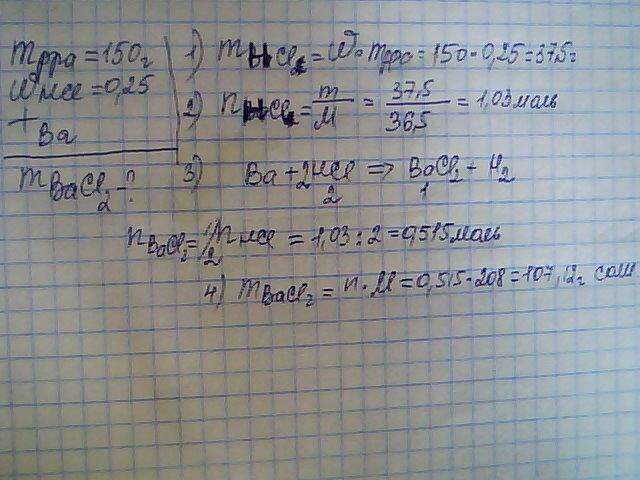 mр-ра = 150г
W HCl = 0,25
+ Ba
m BaCl2 - ?
1) m HCl = W · mр-ра = 150 · 0,25 = 37,5г
2) n HCl = m/M = 37,5/36,5 = 1,03 моль
3) Ba + 2HCl => BaCl2 - H2
2 1
n BaCl2 = 1/2 n HCl = 1,03 : 2 = 0,515 моль
4) m BaCl2 = n · M = 0,515 · 208 = 107,12г соли